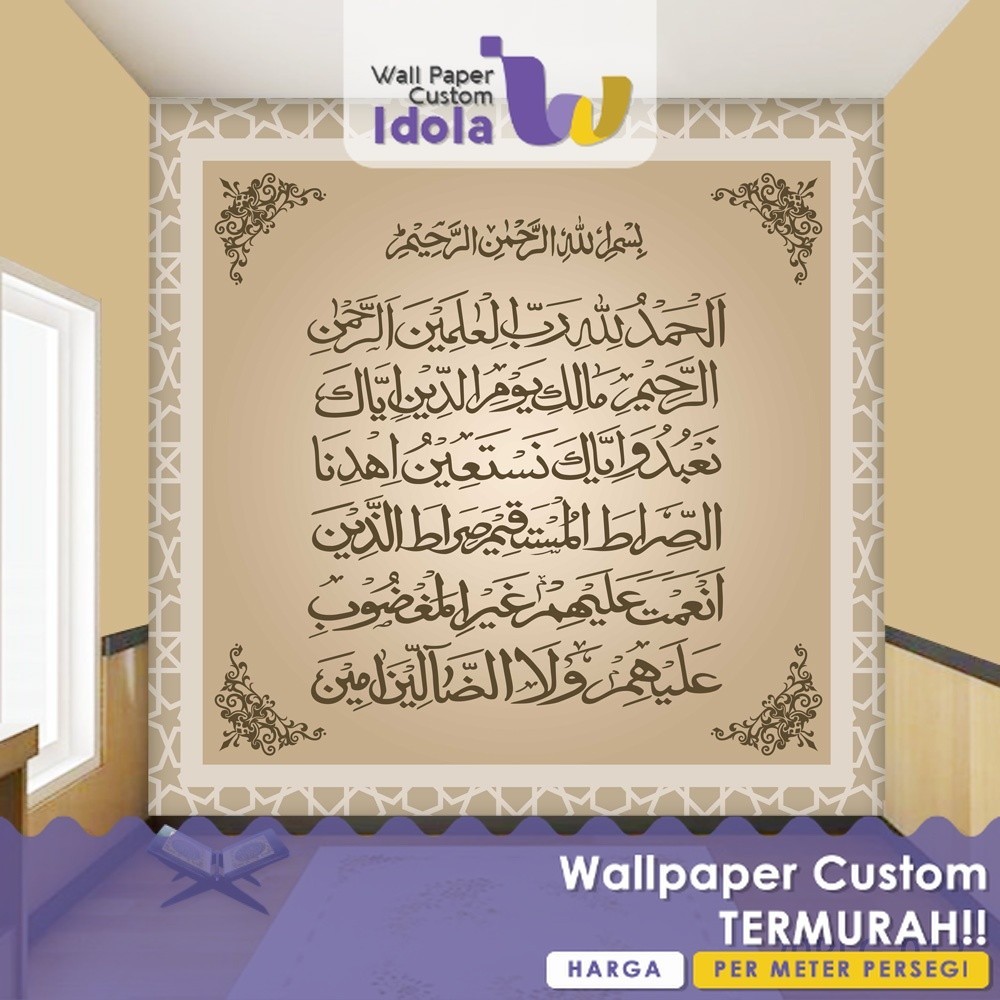 Wall Paper
Custom
Idola
بِسْمِ اللهِ الرَّحْمٰنِ الرَّحِيْمِ
اَلْحَمْدُ لِلّٰهِ رَبِّ الْعٰلَمِيْنَ الرَّحْمٰنِ
الرَّحِيْمِ مَالِكِ يَوْمِ الدِّيْنِ اِيَّاكَ
نَعْبُدُ وَاِيَّاكَ نَسْتَعِيْنُ اِهْدِنَا
الصِّرَاطَ الْمُسْتَقِيْمَ صِرَاطَ الَّذِيْنَ
اَنْعَمْتَ عَلَيْهِمْ غَيْرِ الْمَغْضُوْبِ
عَلَيْهِمْ وَلَا الضَّآلِّيْنَ اٰمِيْنَ
Wallpaper Custom
TERMURAH!!
HARGA PER METER PERSEGI